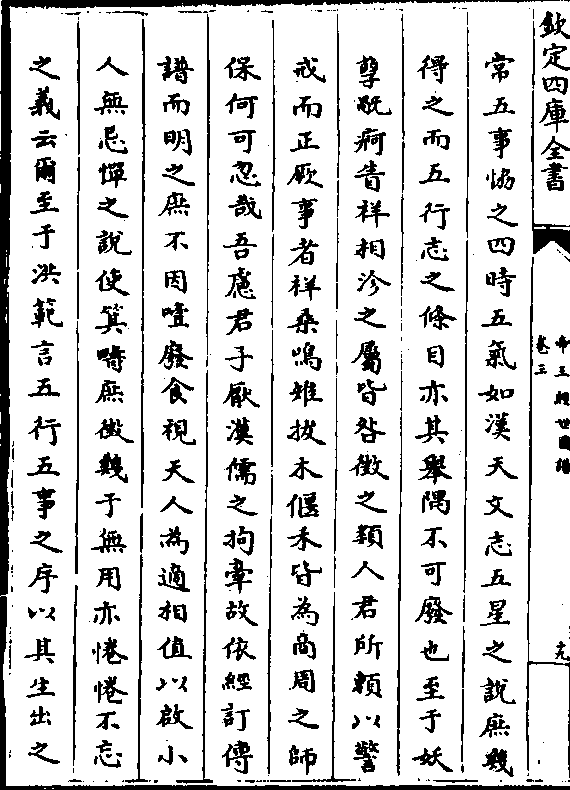 欽定四庫全書
帝王經世圖譜
卷三
九
常五事協之四時五氣如漢天文志五星之說庶幾
得之而五行志之條目亦其舉隅不可廢也至于妖
孽旤痾眚祥相沴之屬皆咎徵之類人君所頼以警
戒而正厥事者祥桑鳴雉拔木偃禾皆為商周之師
保何可忽哉吾慮君子厭漢儒之拘牽故依經訂傳
譜而明之庶不因噎廢食視天人為適相值以啟小
人無忌憚之說使箕疇庶徵幾于無用亦惓惓不忘
之義云爾至于洪範言五行五事之序以其生出之